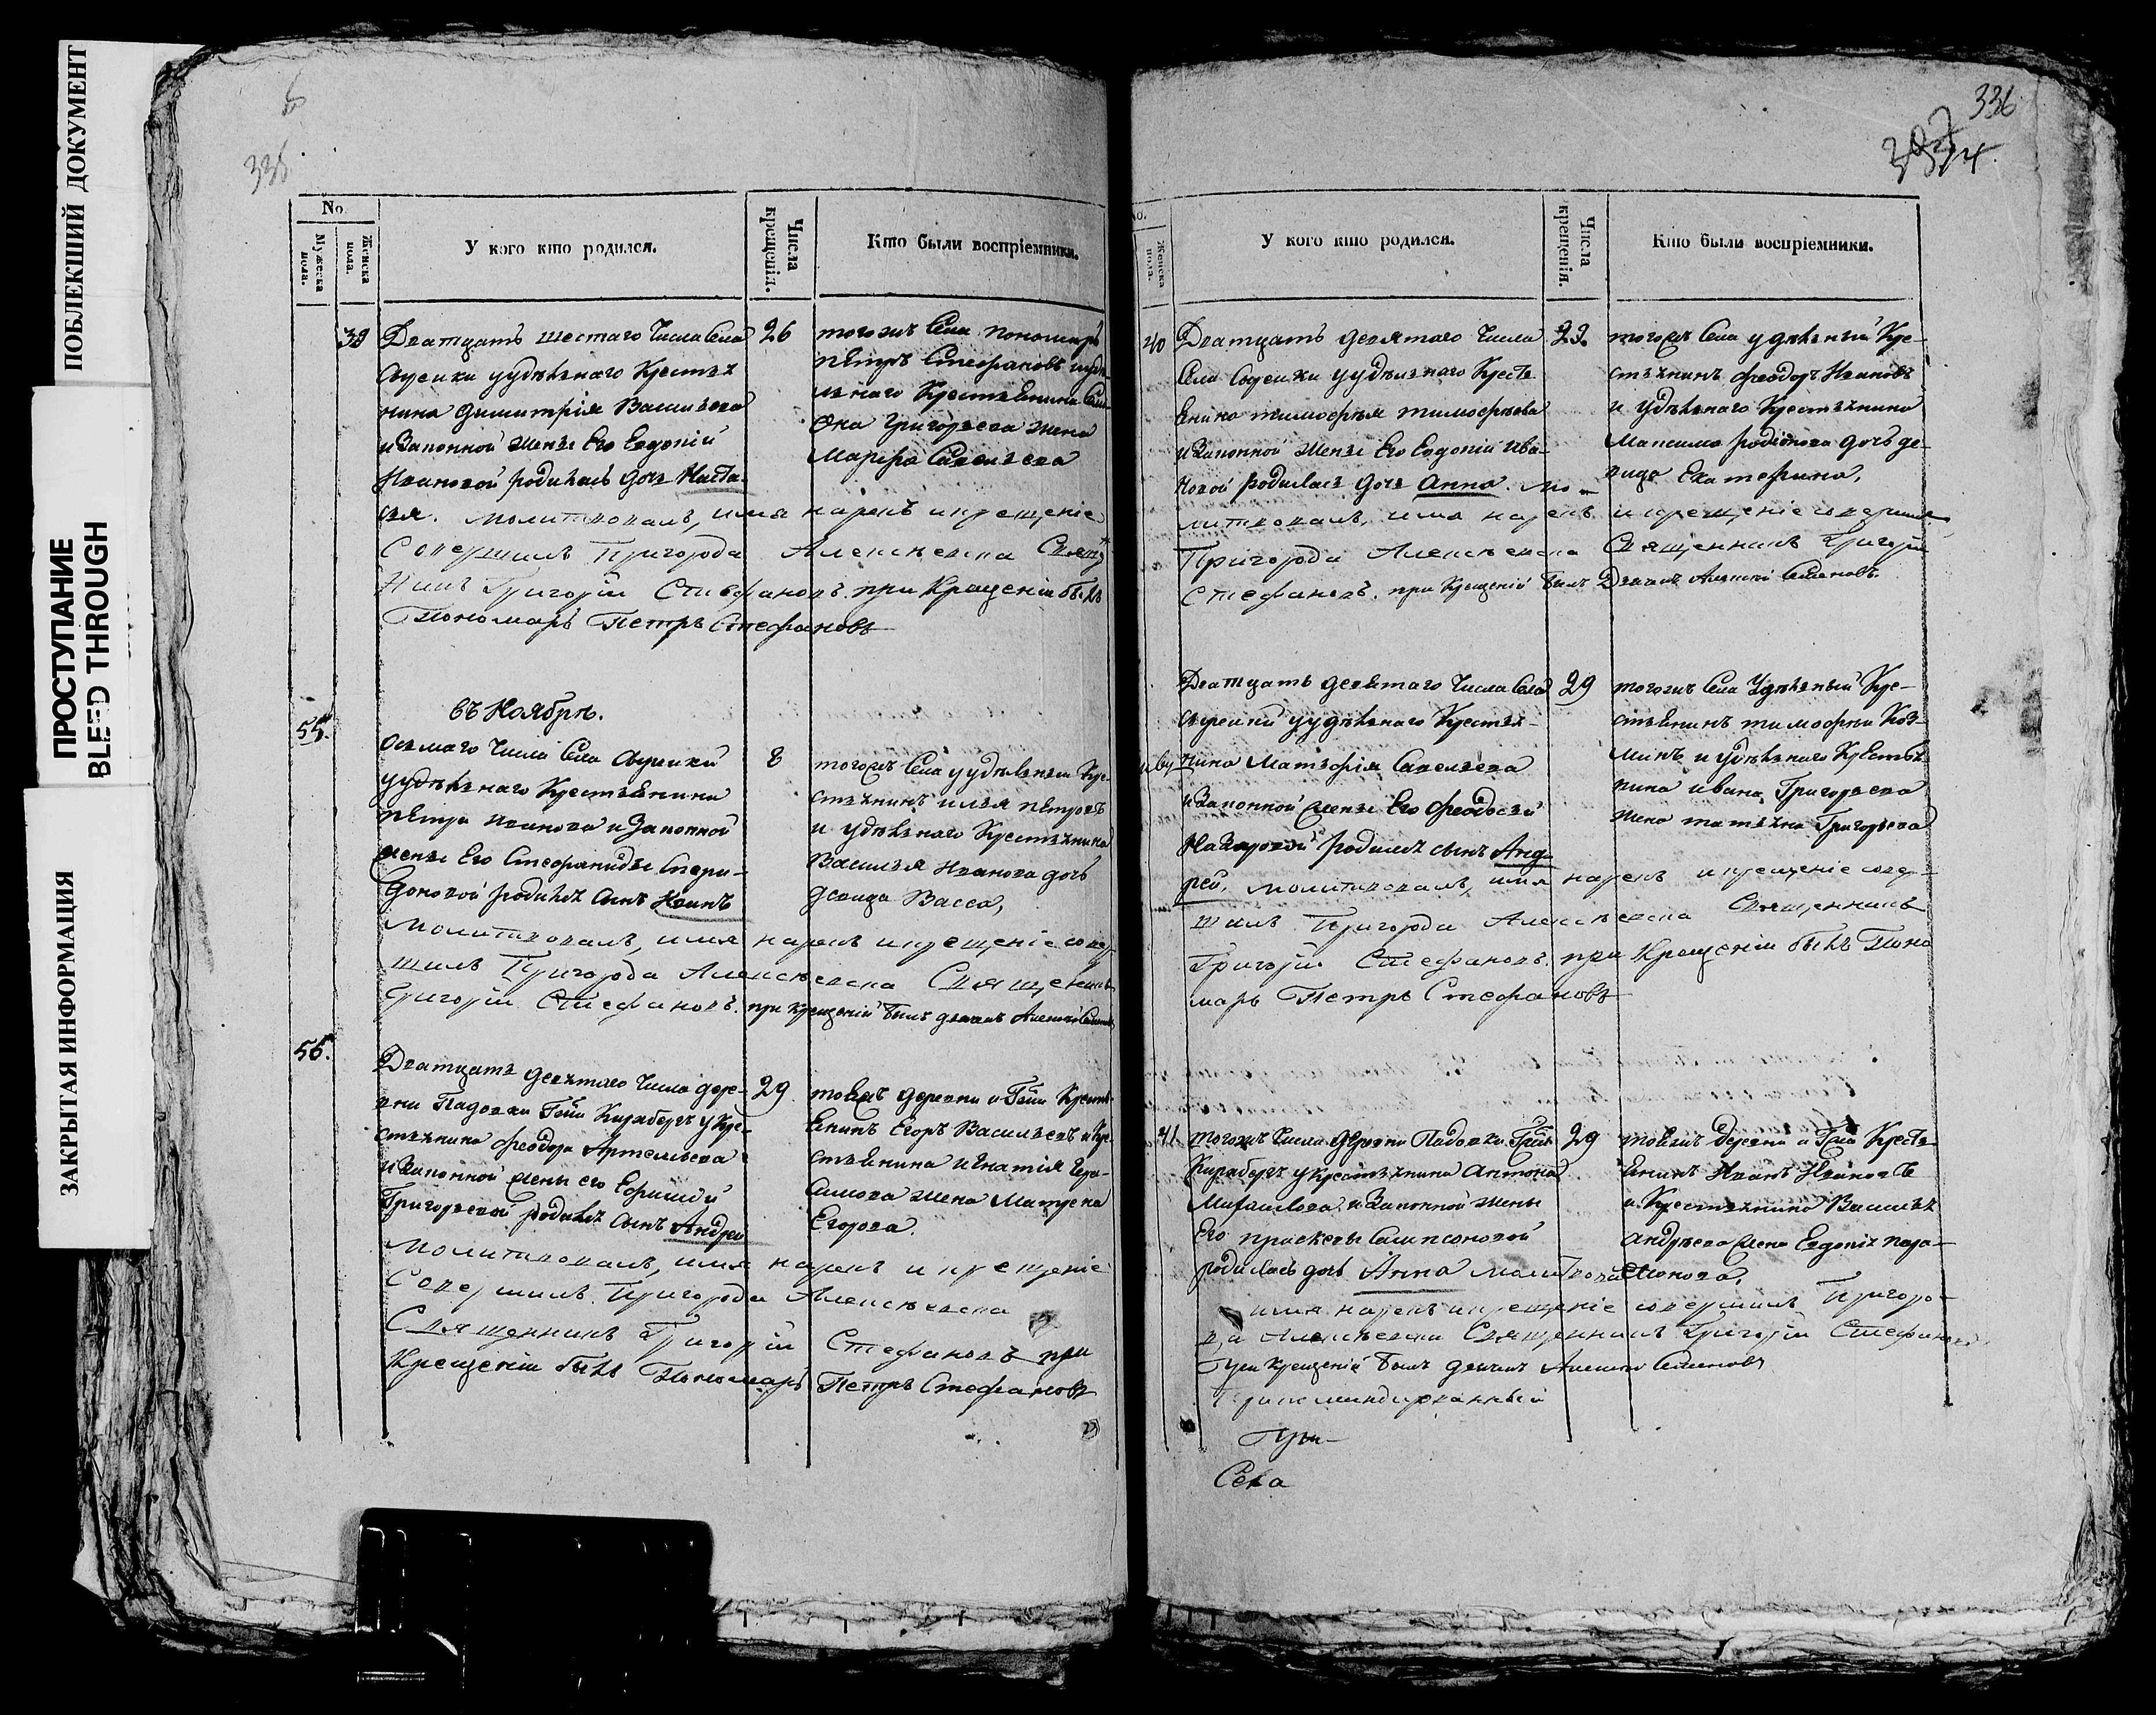 ПОБЛЕКШИЙ ДОКУМЕНТ
ПРОСТУПАНИЕ
BLEED THROUGH
ЗАКРЫТАЯ ИНФОРМАЦИЯ
No
Мужеска пола.
Женска пола.
У кого кто родился.
Числа крещенія.
Кто были воспріемники.
39
Дватцать шестаго Числа Села
уудѣльнаго Крестья
нина Димитрія Васильева
и Законной женѣ Его Евдокіи
Ивановой родилась дочь Наста
сья. молитвовалъ, имя нарекъ и крещеніе
Совершилъ Пригорода Алексѣевска Свящ
никъ Григорій Стефановъ. при Крещеніи былъ
Пономарь Петръ Стефановъ
26
тогожъ Села пономарь
Петръ Стефановъ и удѣ
льнаго Крестьянина Сим
она Григорьева жена
Марфа Савельева
въ Ноябрѣ.
55.
осьмаго числа Села
уудѣльнаго Крестьянина
Петра Иванова и Законной
женѣ Его Стефанидѣ Спири-
доновой родился сынъ Іоаннъ
Молитвовалъ, имя нарекъ и крещеніе совер
шилъ Пригорода Алексѣевска Священникъ
Григорій Стефановъ. при Крещеніи былъ дьячекъ Алексѣй Семеновъ
8
тогожъ Села удѣльный Кре
стьянинъ илья петровъ
и удѣльнаго Крестьянина
Василья Иванова дочь
девица Васса,
56.
Дватцать девятаго Числа дере-
вни Падовки у Кре-
стьянина Феодора Артемьева
и Законной жены его Евфиміи
Григорьевой родился сынъ Андрей
Молитвовалъ, имя нарекъ и крещеніе
Совершилъ Пригорода Алексѣевска
Священникъ Григорій Стефановъ при
Крещеніи былъ Пономарь Петръ Стефановъ
29
тоежъ деревни Кресть
янинъ Егоръ Васильевъ и Кре
стьянина Игнатія Гера-
симова жена Матрена
Егорова.
336
No.
Женска пола.
У кого кто родился.
Числа крещенія.
Кто были воспріемники.
40
Дватцать девятаго Числа
Села уудѣльнаго Кресть
янина тимофѣя тимофѣева
и Законной женѣ Его Евдокіи Ива-
новой родилась дочь Анна. мо-
литвовалъ, имя нарекъ и крещеніе совершилъ
Пригорода Алексѣевска Священникъ Григорій
Стефановъ. при Крещеніи былъ Дьячекъ Алексѣй Семеновъ.
29.
тогожъ Села удѣльный Кре-
стьянинъ Феодоръ Ивановъ
и удѣльнаго Крестьянина
Максима родіонова дочь де-
вица Екатерина,
Дватцать девятаго Числа Села
уудѣльнаго Крестья-
нина Матвѣя Савельева
и Законной женѣ Его Феодосіи
Назаровой родился сынъ Анд-
рей, молитвовалъ, имя нарекъ и крещеніе совер-
шилъ Пригорода Алексѣевска Священникъ
Григорій Стефановъ. при Крещеніи былъ Поно
марь Петръ Стефановъ
29
тогожъ Села Удѣльный Кре-
стьянинъ тимофѣй Коз-
минъ и удѣльнаго Крестья
нина ивана Григорьева
жена татьяна Григорьева
41.
тогожъ Числа деревни Падовки
у крестьянина Антона
Михайлова и Законной жены
Его прасковьи Сампсоновой
родилась дочь Анна молитвовалъ
имя нарекъ и крещеніе совершилъ Пригоро-
да Алексѣевска Священникъ Григорій Стефановъ.
При крещеніи былъ дьячекъ Алексѣй Семеновъ
29
тоежъ деревни Кресть
янинъ Иванъ Ивановъ
и Крестьянина Василья
Андрѣева жена Евдокія пара-
монова.
При-
Села